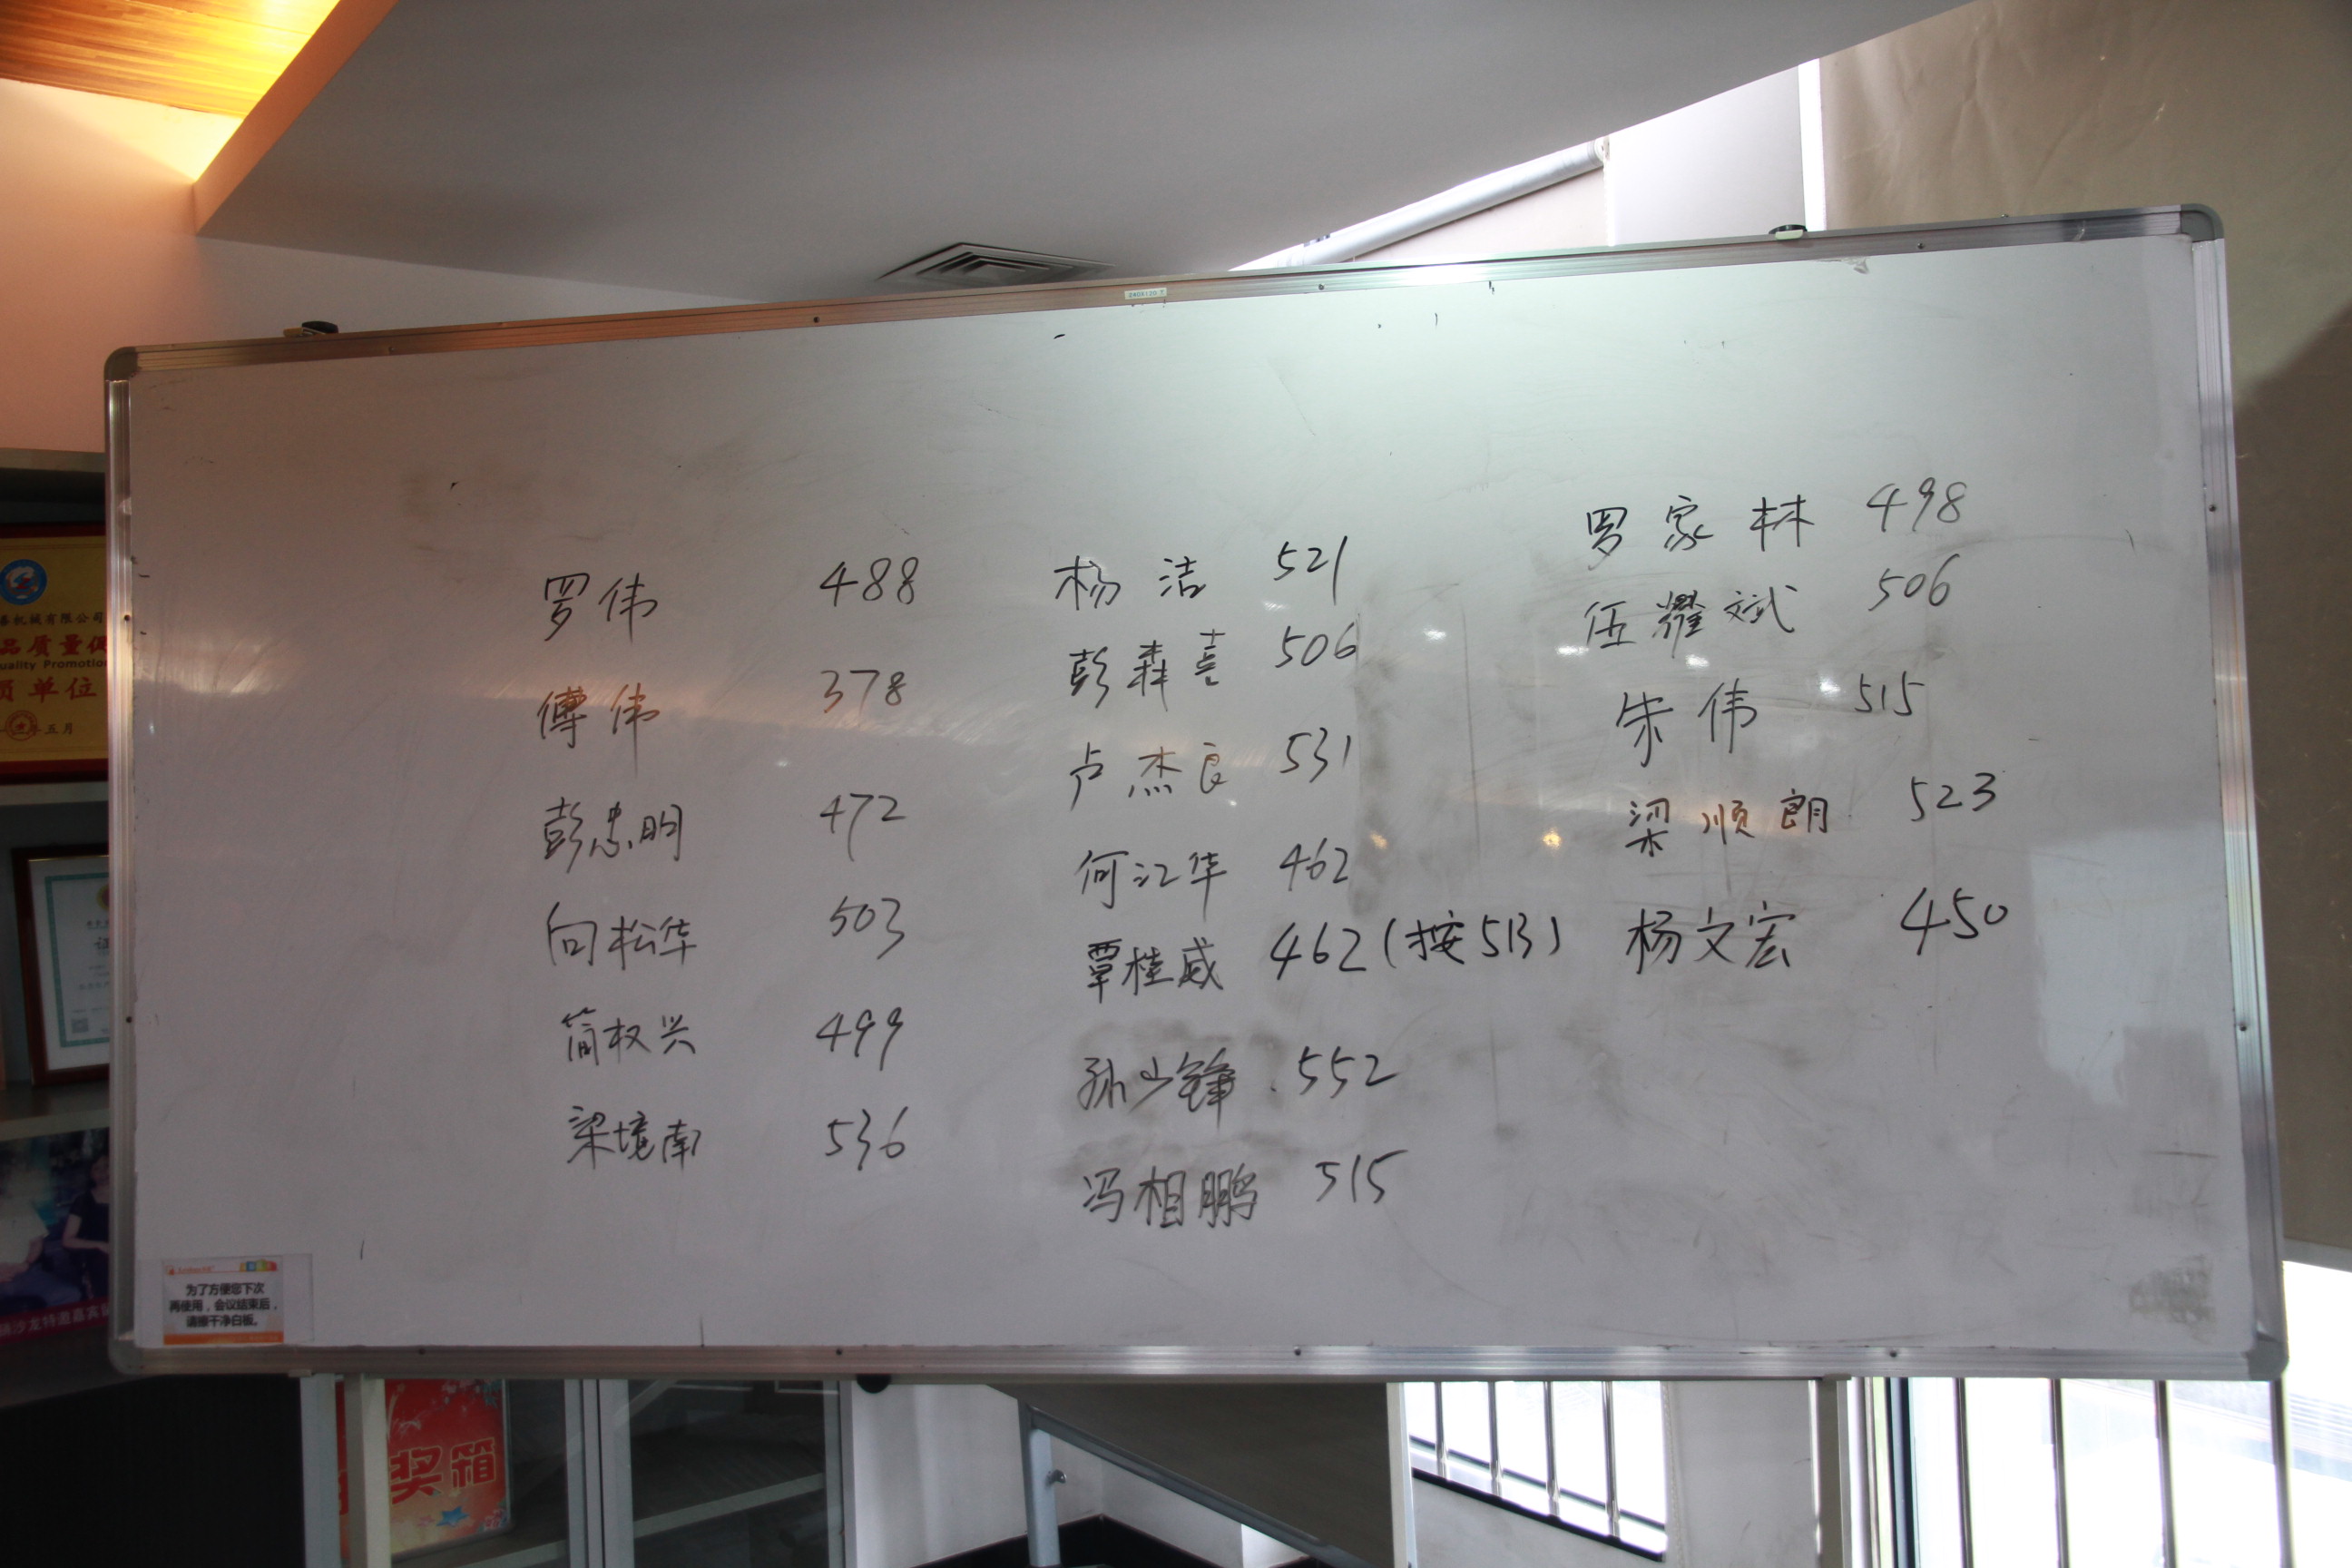 罗伟 488
傅伟 378
彭忠明 472
向松华 503
简权兴 499
梁境南 536
杨洁 521
彭森喜 506
卢杰良 531
何江华 462
覃桂威 462(按513)
孙少锋 552
冯相鹏 515
罗家林 498
伍耀斌 506
朱伟 515
梁顺朗 523
杨文宏 450
为了方便您下次
再使用，会议结束后，
请擦干净白板。
机械有限公司
品质量
uality Promotio
员单位
五月
沙龙特邀嘉宾
奖箱